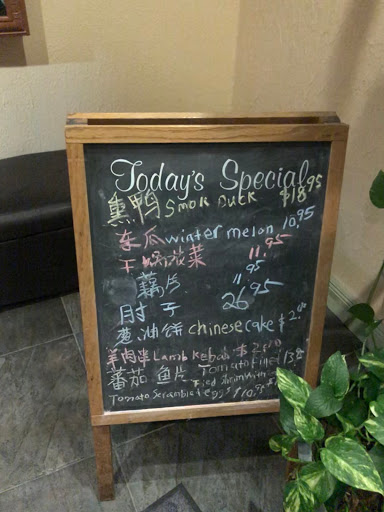 Today's Special
熏鸭 Smok Duck $18.95
冬瓜 winter melon 10.95
干锅 菜 11.95
藕片 11.95
肘子 26.95
葱油饼 chinese cake $2.00
羊肉串 Lamb Kebab $2.00
蕃茄鱼片 Tomato Filled 13.95
Fried Shrimp with
Tomato Scrambled eggs $10.95